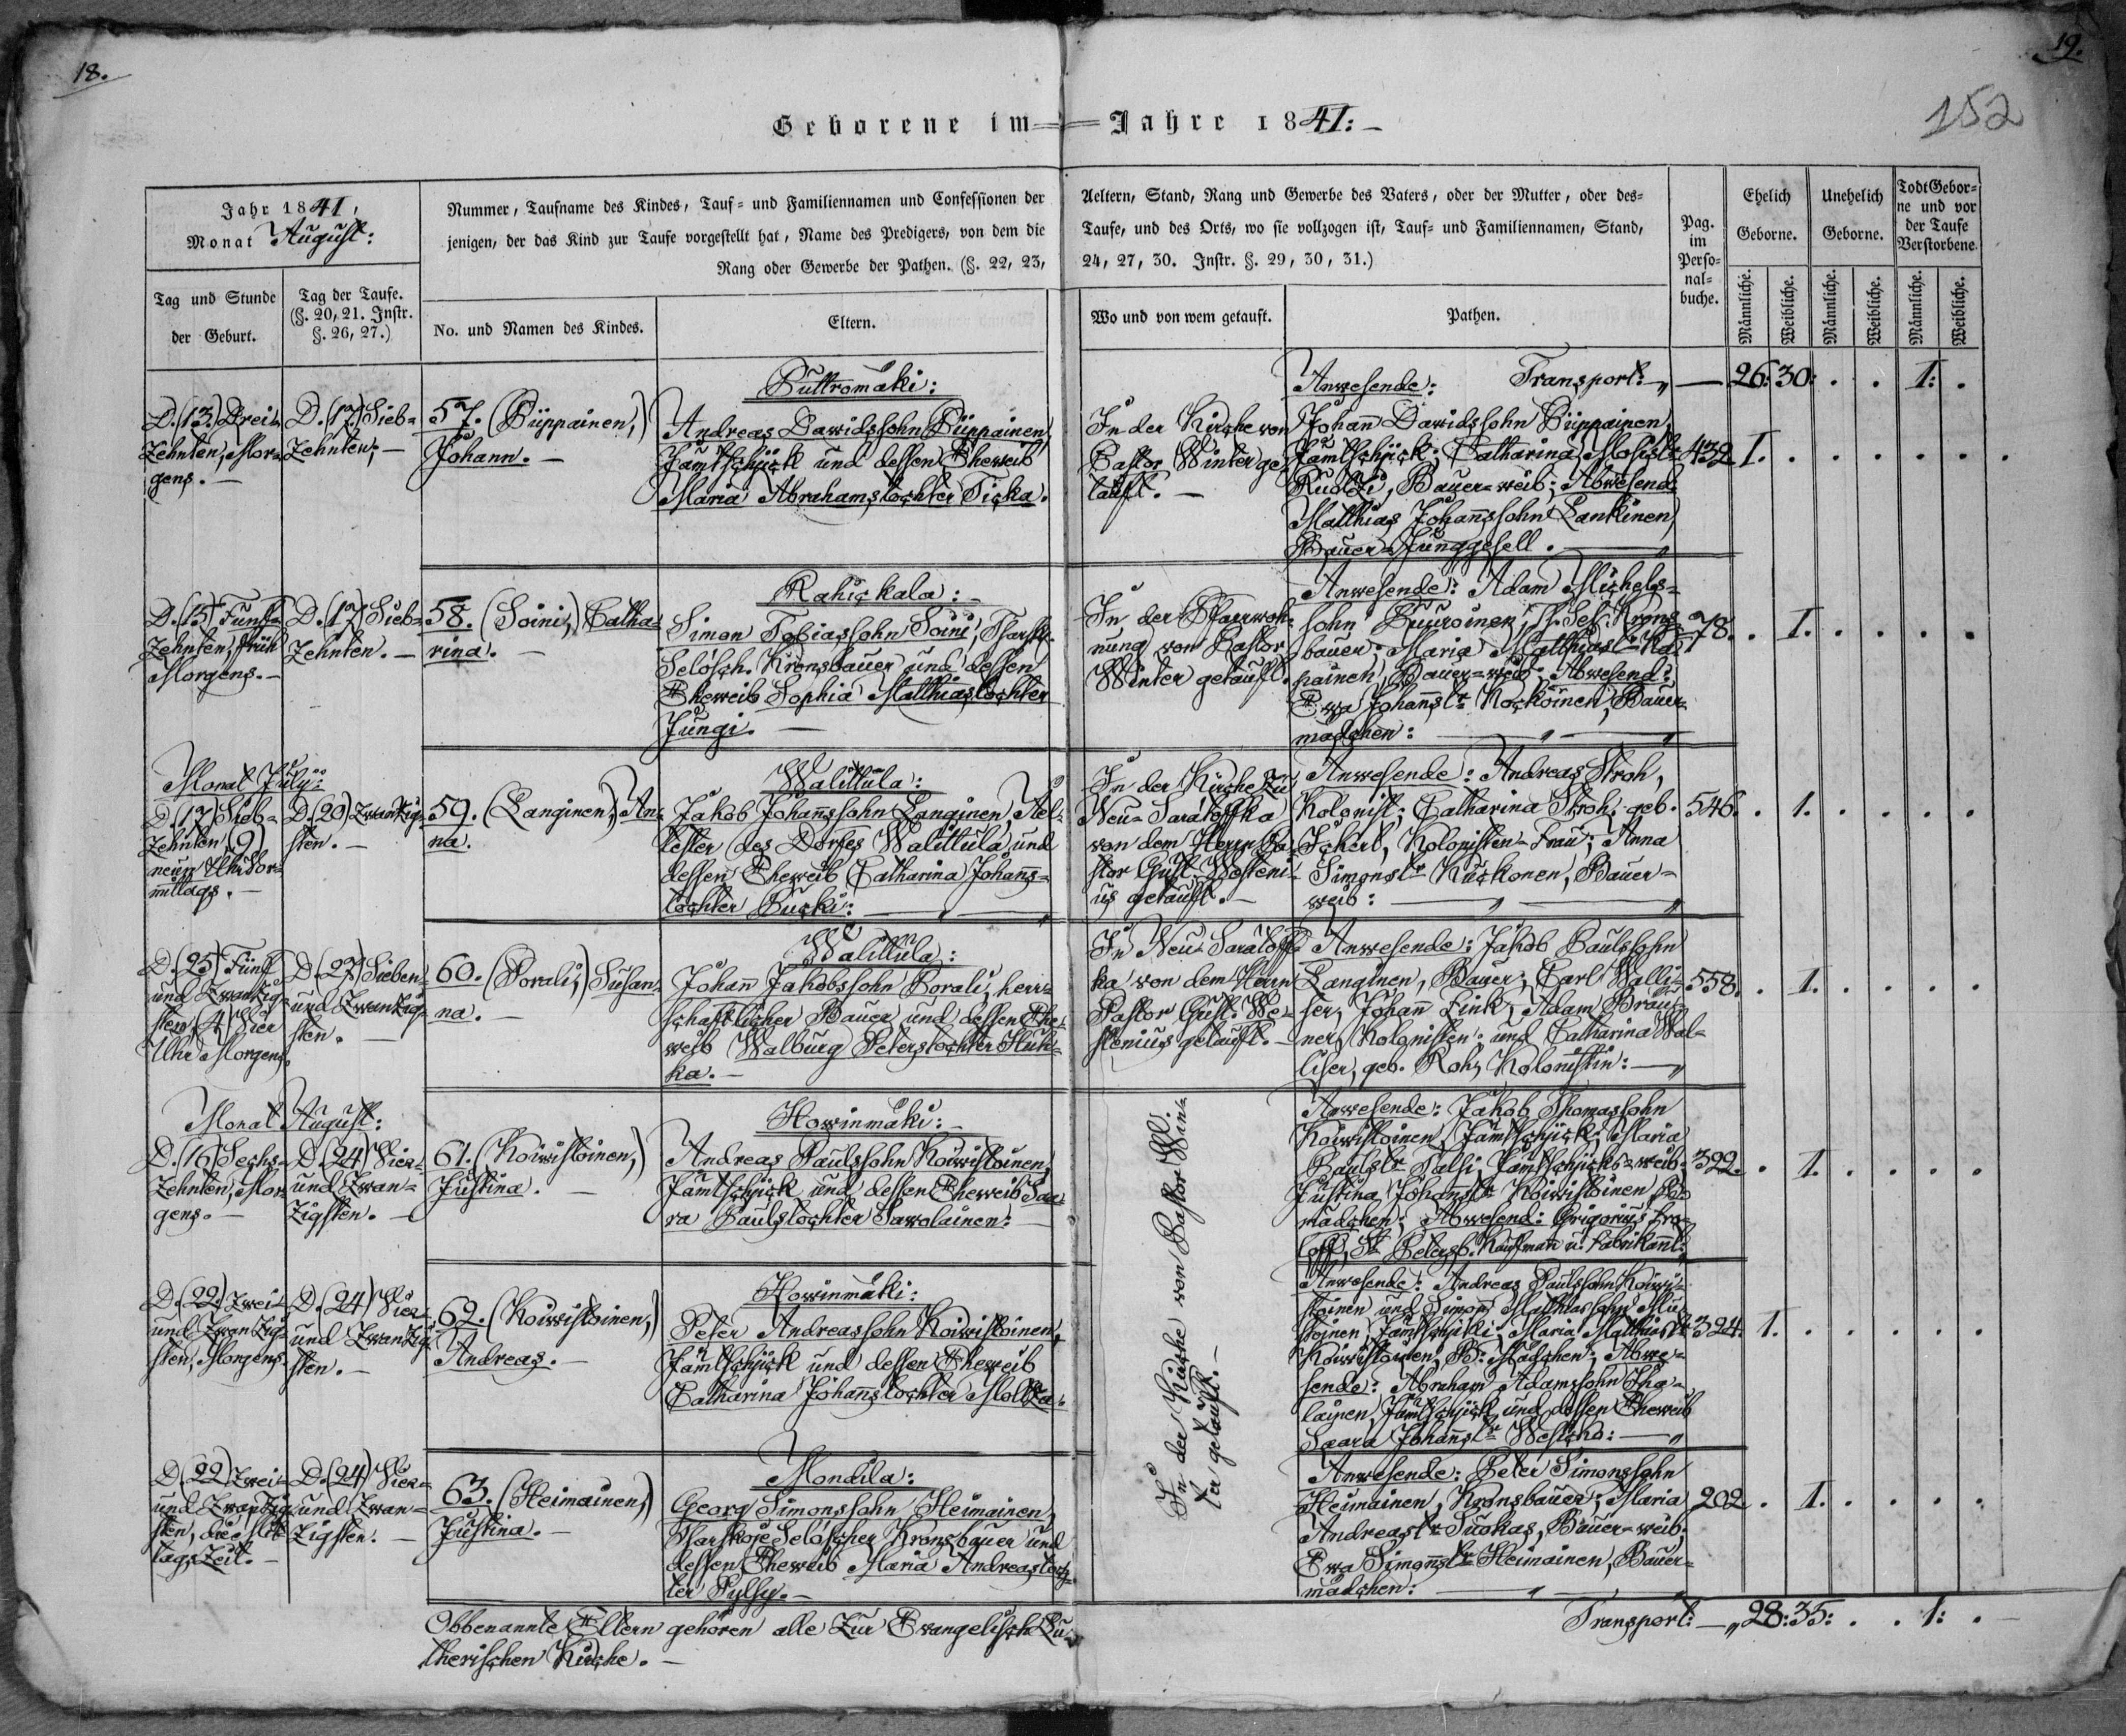 18.
19.
152
Geborene im Jahre 1841:
Jahr 1841,
Monat August:
Tag und Stunde
der Geburt.
Tag der Taufe.
(§. 20, 21. Instr.
§. 26, 27.)
Nummer, Taufname des Kindes, Tauf- und Familiennamen und Confessionen der
jenigen, der das Kind zur Taufe vorgestellt hat, Name des Predigers, von dem die
Rang oder Gewerbe der Pathen. (§. 22, 23,
No. und Namen des Kindes.
Eltern.
Aeltern, Stand, Rang und Gewerbe des Vaters, oder der Mutter, oder des-
Taufe, und des Orts, wo sie vollzogen ist, Tauf- und Familiennamen, Stand,
24, 27, 30. Instr. §. 29, 30, 31.)
Wo und von wem getauft.
Pathen.
Pag.
im
Perso-
nal-
buche.
Ehelich
Geborne.
Unehelich
Geborne.
Todt Gebor-
ne und vor
der Taufe
Verstorbene.
Männliche.
Weibliche.
Männliche.
Weibliche.
Männliche.
Weibliche.
Transport: 26: 30: . . 1: .
D. (13.) Drei-
zehnten, Mor-
gens. –
D. (17.) Sieb-
zehnten; –
57. (Püppainen,)
Johann. –
Puttromäki:
Andreas Dawidssohn Püppainen,
Jämtschjick und dessen Eheweib
Maria Abrahamstochter Ticka.
In der Kirche von
Pastor Winter ge-
tauft. –
Anwesende:
Johann Dawidssohn Püppainen,
Jämtschjick; Catharina
Bauer-weib; Abwesend:
Matthias Johannssohn Lankinen,
Bauer-Junggesell.
432. 1. . . . . .
D. (15) Fünf-
zehnten, früh
Morgens. –
D. (17) Sieb-
zehnten. –
58. (Soini,) Catha-
rina. –
Rahickala: –
Simon Tobiassohn Soini,
Selösch. Kronsbauer und dessen
Eheweib Sophia Matthiastochter
Jungi. –
In der Pfarrwoh-
nung von Pastor
Winter getauft.
Anwesende: Adam Michels-
sohn Krons-
bauer; Maria Matthiast.
Bauer-weib; Abwesend:
Ewa Johannst. Bauer-
mädchen:
78. . 1. . . . .
Monat July:
D. 17 Sieb-
zehnten (9)
neun Uhr Vor-
mittags. –
D. (20) Zwanzig-
sten. –
59. (Langinen,) An-
na.
Walittula:
Jakob Johannssohn Langinen, Ael-
tester des Dorfes Walittula, und
dessen Eheweib Catharina Johanns-
tochter Pucki:
In der Kirche zu
Neu-Saratoffka
von dem Herrn Pa-
stor Gust. Westeni-
us getauft. –
Anwesende: Andreas Stroh,
Kolonist; Catharina Stroh, geb.
Kolonisten-Frau; Anna
Simonst. Bauer-
weib:
546. . 1. . . . .
D. (25) Fünf
und zwanzig-
sten, (4) Vier
Uhr Morgens.
D. (27) Sieben-
und zwanzig-
sten.
60. (Porali,) Susan-
na. –
Walittula:
Johann Jakobssohn Porali, herr-
schaftlicher Bauer und dessen Ehe-
weib Walburg Peterstochter
In Neu-Saratoff-
ka von dem Herrn
Pastor Gust. We-
stenius getauft. –
Anwesende: Jakob Paulssohn
Langinen, Bauer; Carl Walli-
ser, Johann Link, Adam Bräu-
ner, Kolonisten: und Catharina Wal-
liser, geb. Roh, Kolonistin:
558. . 1. . . . .
Monat August:
D. (16) Sechs-
zehnten, Mor-
gens. –
D. (24) Vier-
und zwan-
zigsten. –
61. (Koiwistoinen,)
Justina. –
Howinmäki: –
Andreas Paulssohn Koiwistoinen,
Jämtschjick und dessen Eheweib Saa-
ra Paulstochter Sawolainen:
In der Kirche von Pastor Win-
ter getauft. –
Anwesende: Jakob Thomassohn
Koiwistoinen, Jämtschjick; Maria
Paulst. Talsi, Jämtschjicks-weib;
Justina Johannst. Koiwistoinen
mädchen; Abwesend: Grigorius
St. Petersb. Kaufmann u: Fabrikannt:
322. . 1. . . . .
D. (22) Zwei-
und zwanzig-
sten, Morgens.
D. (24) Vier-
und zwanzig-
sten. –
62. (Koiwistoinen,)
Andreas. –
Howinmäki:
Peter Andreassohn Koiwistoinen,
Jämtschjick und dessen Eheweib
Catharina Johannstochter
Anwesende: Andreas Paulssohn Koiwi-
stoinen und Simon Matthiassohn
Maria Matthiast.
Koiwistoinen, B: Mädchen; Abwe-
sende: Abraham Adamssohn
Jämtschjick und dessen Eheweib
Saara Johannst.
324. 1. . . . . .
D. (22) Zwei-
und zwanzig-
sten, die Mit-
tags Zeit. –
D. (24) Vier-
und zwan-
zigsten. –
63. (Heimainen,)
Justina. –
Mondila:
Georg Simonssohn Heimainen,
Kronsbauer und
dessen Eheweib Maria Andreastoch-
ter Pylsy. –
Anwesende: Peter Simonssohn
Heimainen, Kronsbauer; Maria
Andreast. Suokas, Bauer-weib;
Ewa Simonst. Heimainen, Bauer-
mädchen:
202. . 1. . . . .
Obbenannte Eltern gehören alle zur Evangelisch Lu-
therischen Kirche. –
Transport: 28: 35: . . 1: .